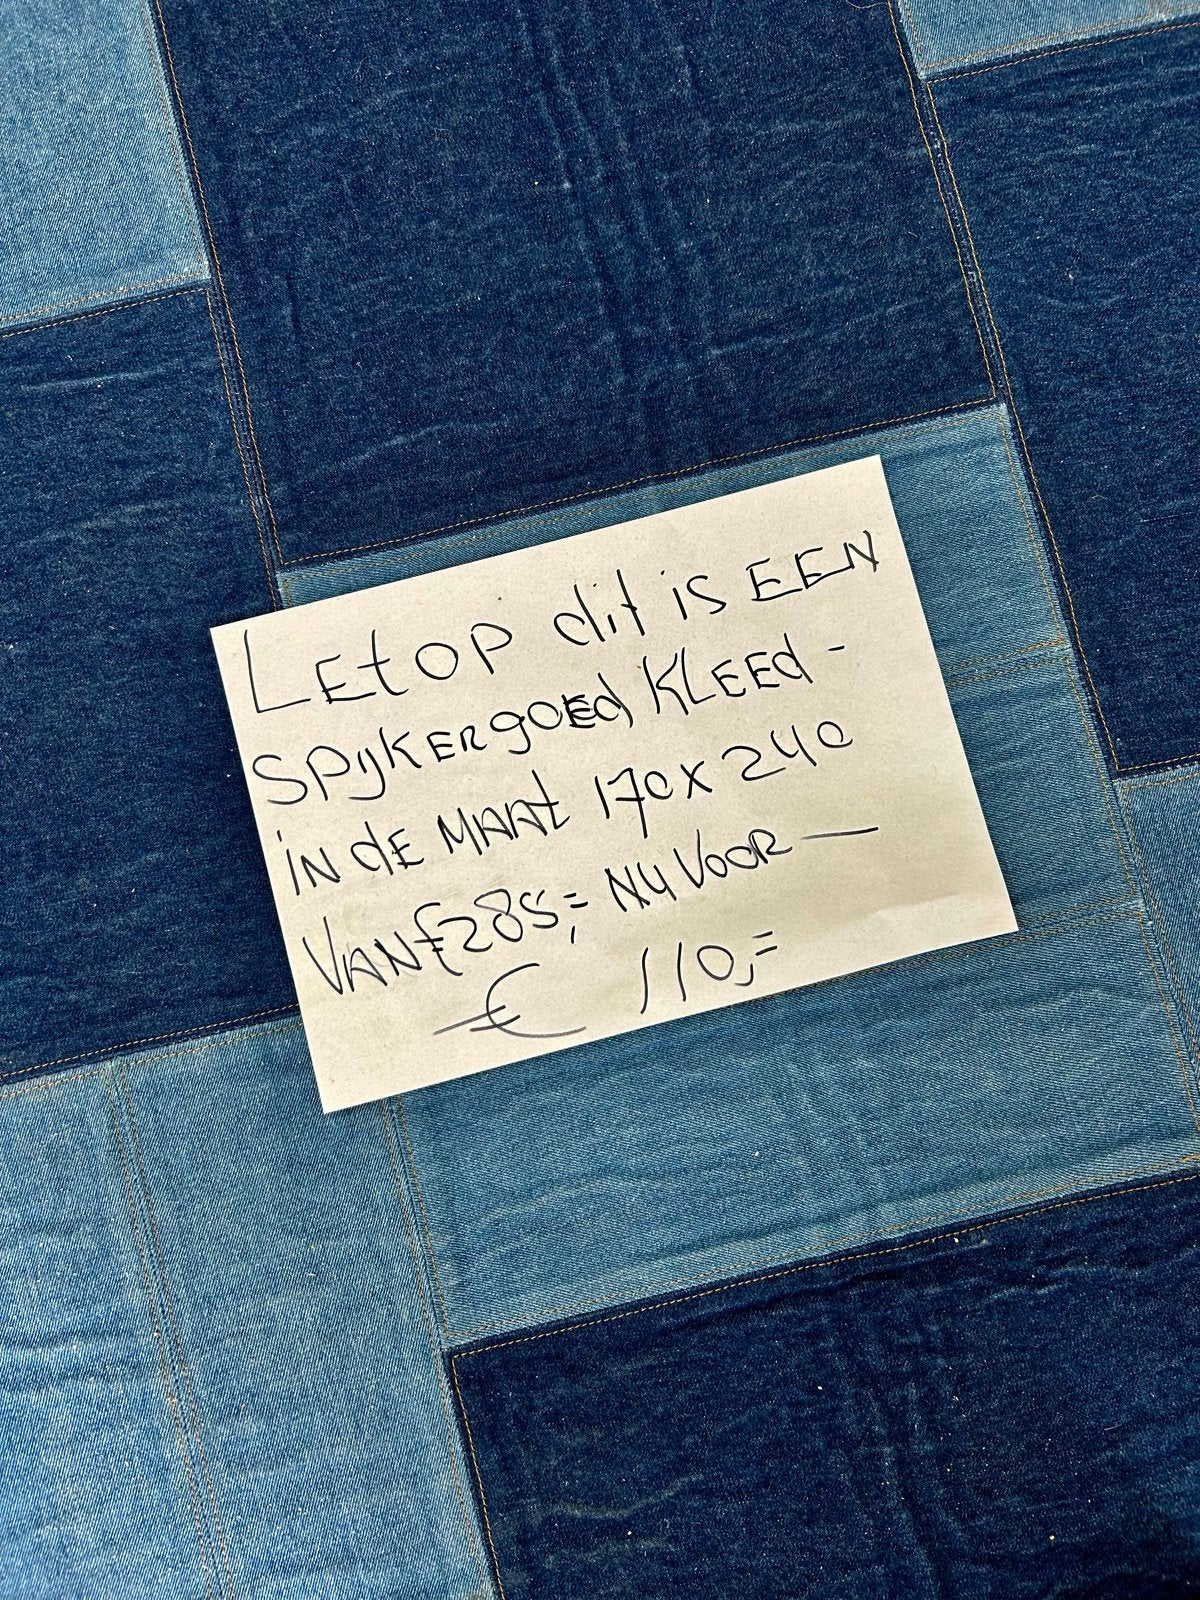 LEtOP dit iS EEN
SPIJKERgOEd KLEEd -
iN dE MAAt 170 x 240
VAN €285,= NU VOOR —
€ 110,=